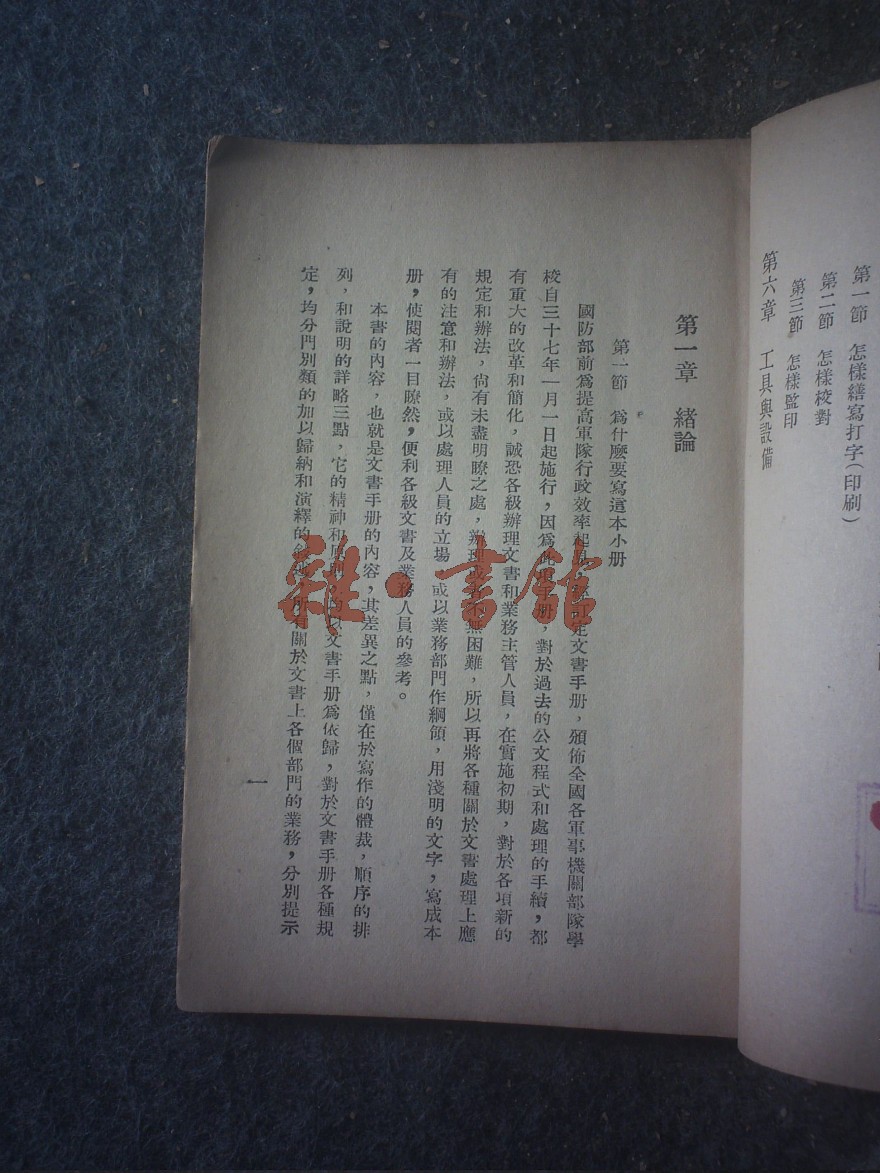 第一節　怎樣繕寫打字（印刷）
第二節　怎樣校對
第三節　怎樣監印
第六章　工具與設備
第一章　緒論
第一節　為什麽要寫這本小册
國防部前為提高軍隊行政效率起見，訂定文書手册，頒佈全國各軍事機關部隊學
校自三十七年一月一日起施行，因為手册，對於過去的公文程式和處理的手續，都
有重大的改革和簡化，誠恐各級辦理文書和業務主管人員，在實施初期，對於各項新的
規定和辦法，尚有未盡明瞭之處，辦理無困難，所以再將各種關於文書處理上應
有的注意和辦法，或以處理人員的立場，或以業務部門作綱領，用淺明的文字，寫成本
册，使閱者一目瞭然，便利各級文書及業務人員的參考。
本書的內容，也就是文書手册的內容，其差異之點，僅在於寫作的體裁，順序的排
列，和說明的詳略三點，它的精神和原則，以文書手册為依歸，對於文書手册各種規
定，均分門別類的加以歸納和演繹的，所有關於文書上各個部門的業務，分別提示
一
雜·書館